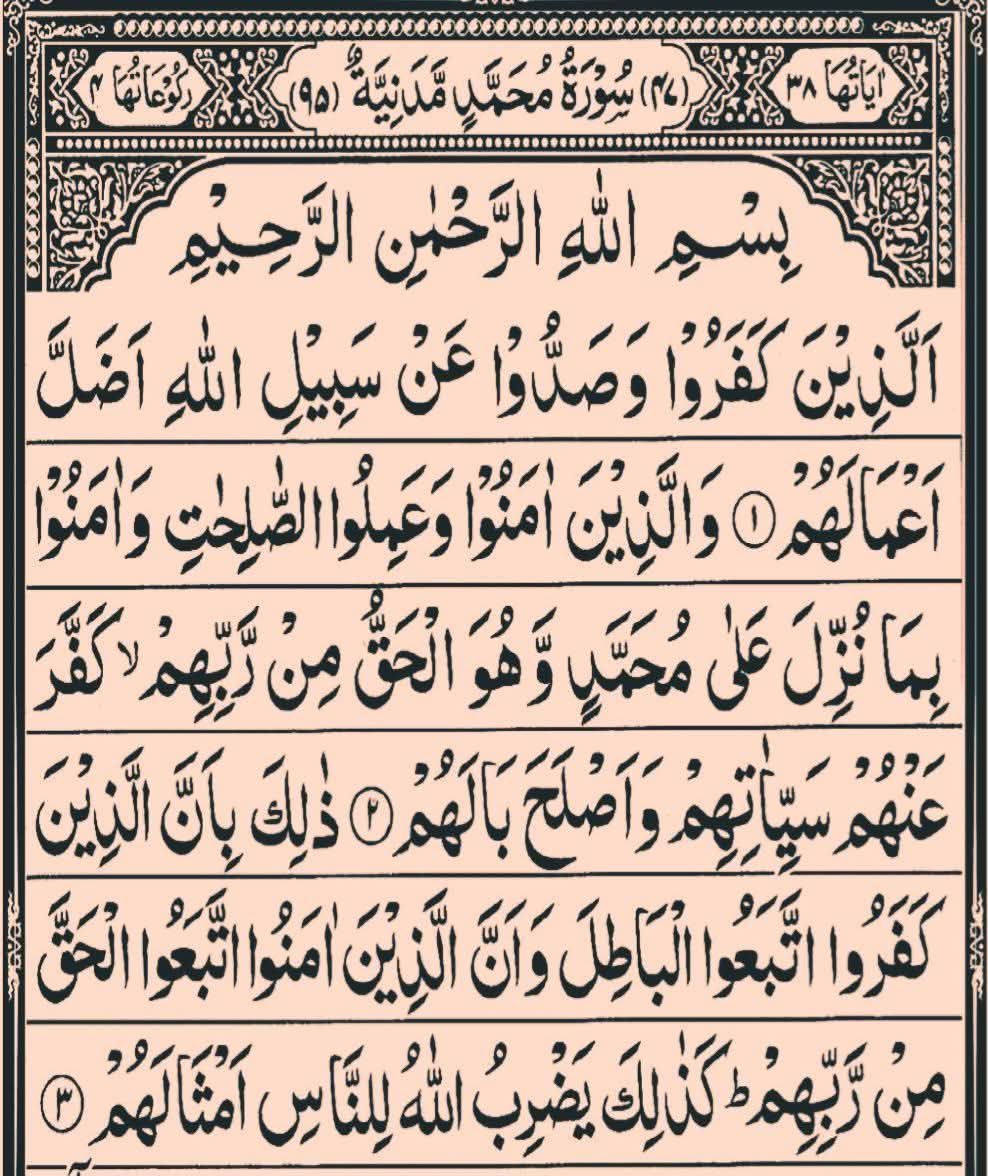 اٰیَاتُهَا ۳۸ (۴۷) سُوْرَةُ مُحَمَّدٍ مَّدَنِیَّةٌ (۹۵) رُكُوْعَاتُهَا ۴
بِسْمِ اللهِ الرَّحْمٰنِ الرَّحِیْمِ
اَلَّذِیْنَ كَفَرُوْا وَصَدُّوْا عَنْ سَبِیْلِ اللهِ اَضَلَّ
اَعْمَالَهُمْ ۱ وَالَّذِیْنَ اٰمَنُوْا وَعَمِلُوا الصّٰلِحٰتِ وَاٰمَنُوْا
بِمَا نُزِّلَ عَلٰی مُحَمَّدٍ وَّهُوَ الْحَقُّ مِنْ رَّبِّهِمْ ۙ كَفَّرَ
عَنْهُمْ سَیِّاٰتِهِمْ وَاَصْلَحَ بَالَهُمْ ۲ ذٰلِكَ بِاَنَّ الَّذِیْنَ
كَفَرُوا اتَّبَعُوا الْبَاطِلَ وَاَنَّ الَّذِیْنَ اٰمَنُوا اتَّبَعُوا الْحَقَّ
مِنْ رَّبِّهِمْ ؕ كَذٰلِكَ یَضْرِبُ اللهُ لِلنَّاسِ اَمْثَالَهُمْ ۳